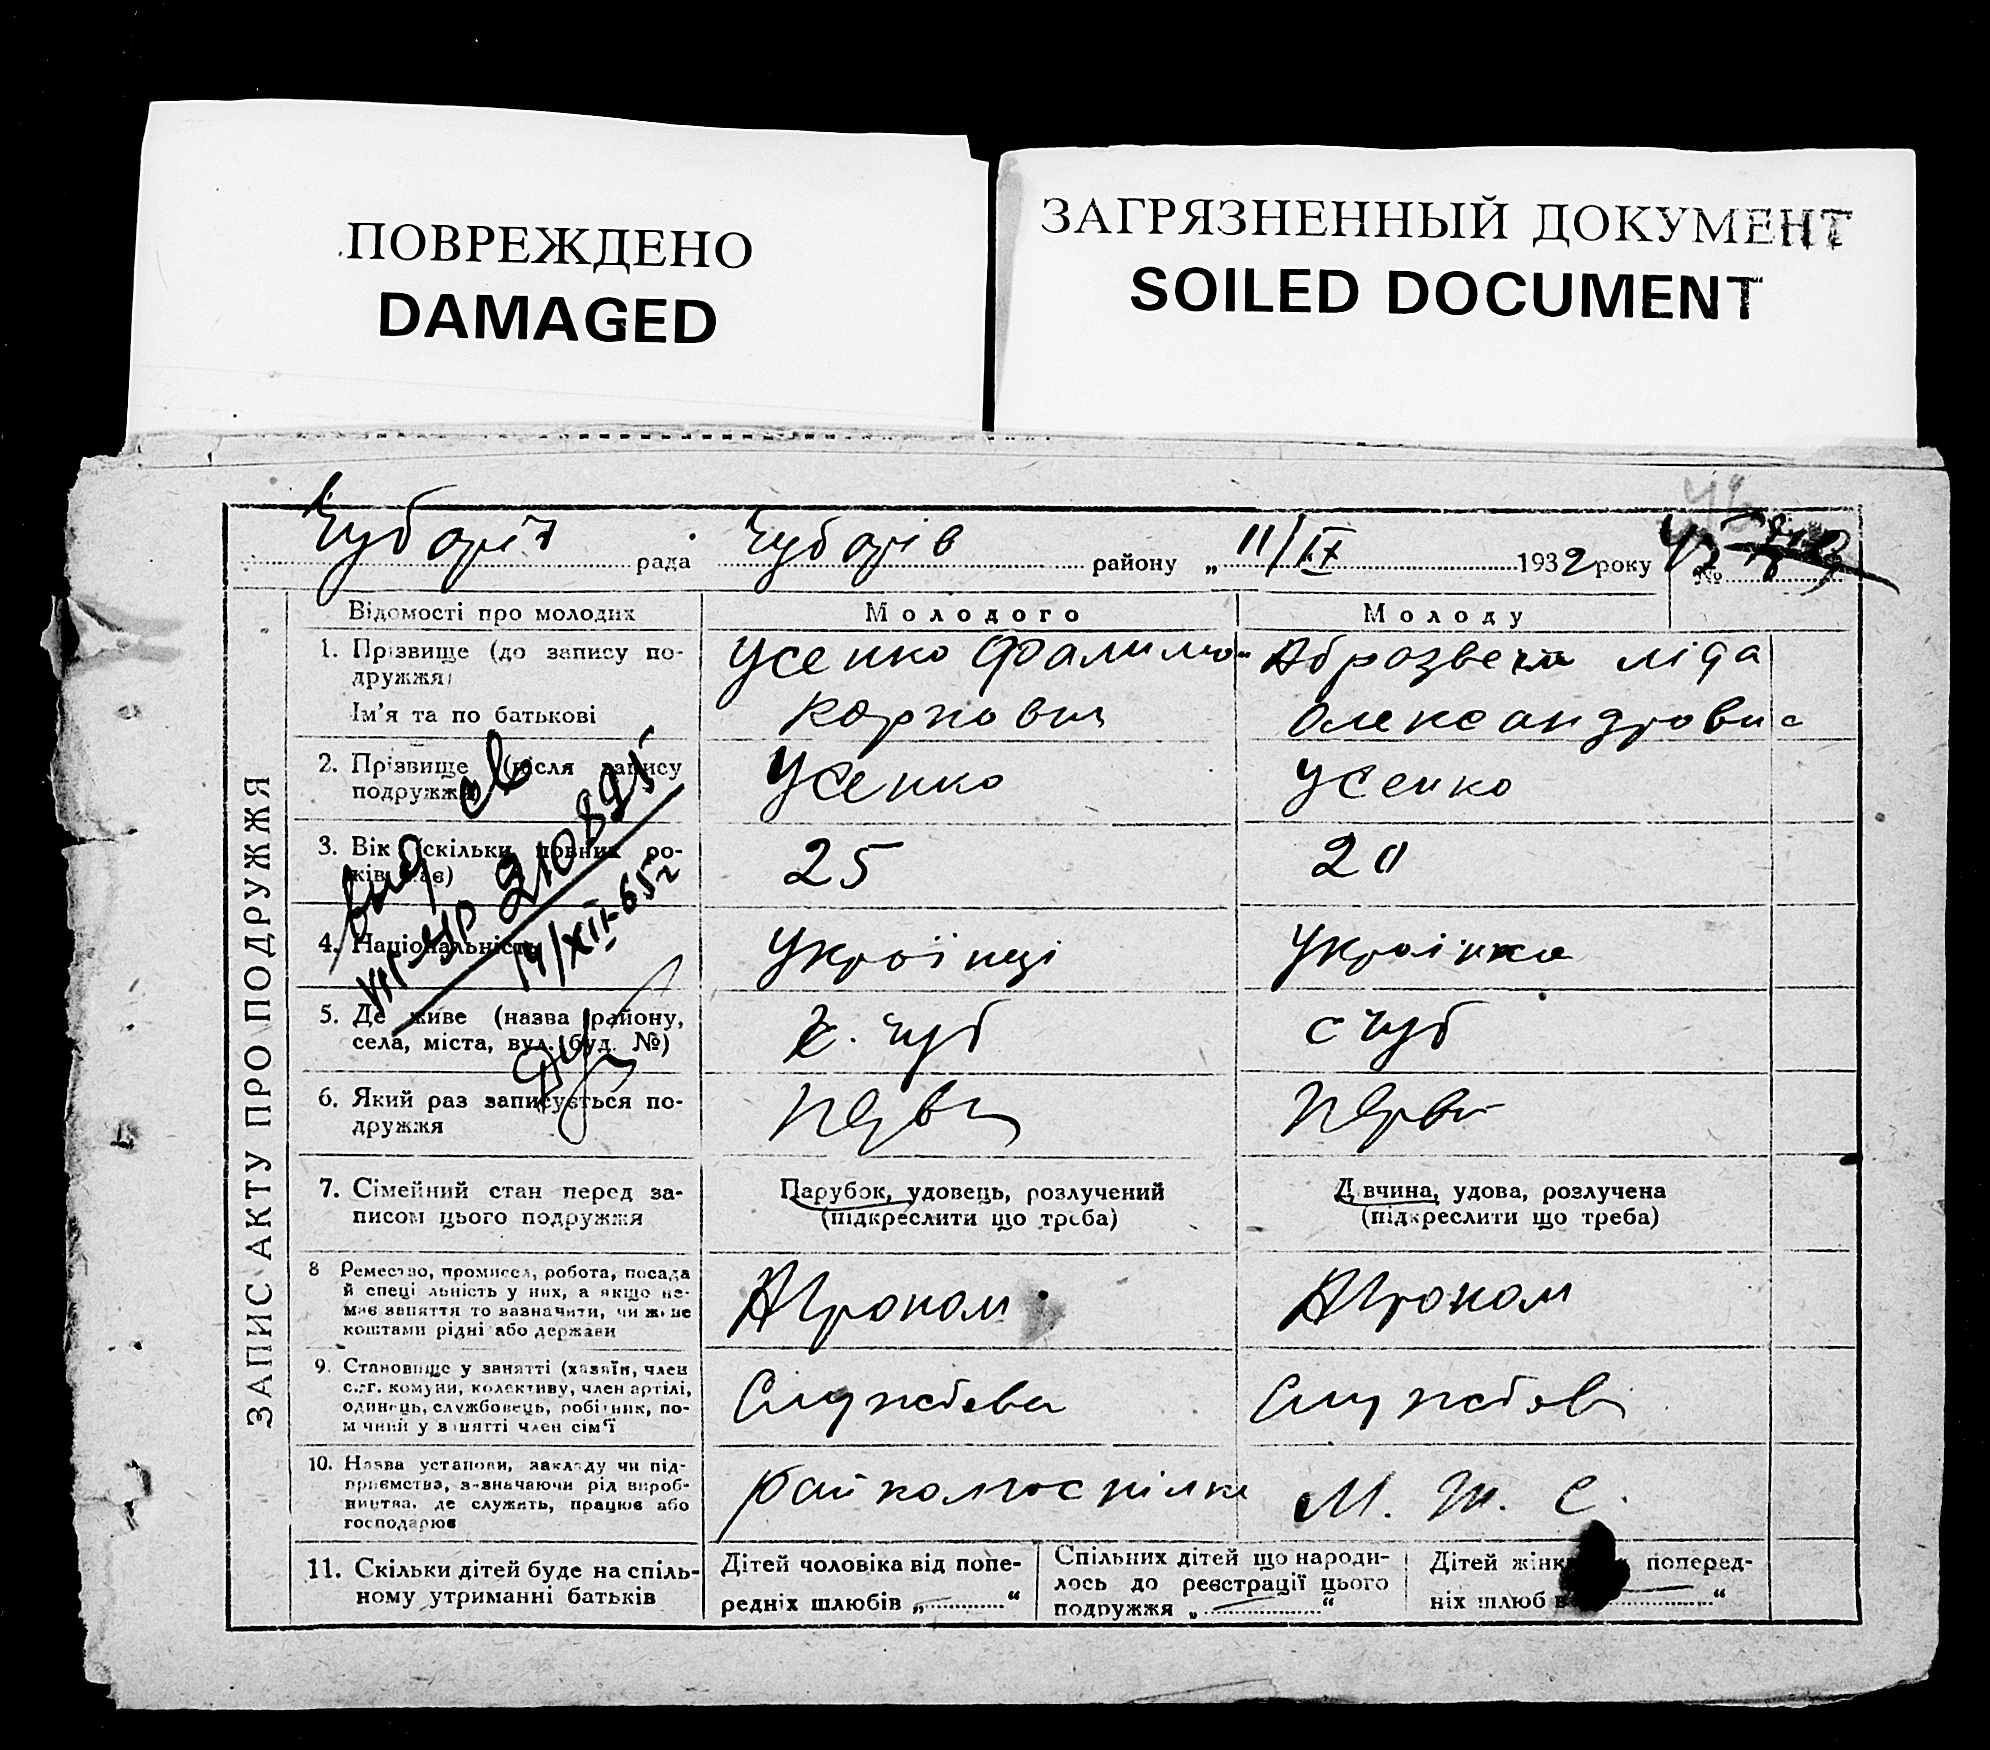 ПОВРЕЖДЕНО
DAMAGED
ЗАГРЯЗНЕННЫЙ ДОКУМЕНТ
SOILED DOCUMENT
рада Чубарів району „ 11/IX 1932 року №
ЗАПИС АКТУ ПРО ПОДРУЖЖЯ
Відомості про молодих
Молодого
Молоду
1. Прізвище (до запису по-
дружжя)
Ім'я та по батькові
Усенко
Карпович
Ліда
Александровна
2. Прізвище (після запису
подружжя)
Усенко
Усенко
3. Вік (скільки повних ро-
ків має)
25
20
4. Національність
Українці
Українка
5. Де живе (назва району,
села, міста, вул. буд. №)
с. Чуб
с Чуб
6. Який раз записується по-
дружжя
Перви
Перви
7. Сімейний стан перед за-
писом цього подружжя
Парубок, удовець, розлучений
(підкреслити що треба)
Дівчина, удова, розлучена
(підкреслити що треба)
8 Ремество, промисел, робота, посада
й спеціальність у них, а якщо не-
має заняття то зазначити, чи живе
коштами рідні або держави
Агроном
Агроном
9. Становище у занятті (хазяїн, член
с.-г. комуни, колективу, член артілі,
одинець, службовець, робітник, по-
мічний у занятті член сім'ї
Службова
Службові
10. Назва установи, закладу чи під-
приємства, зазначаючи рід вироб-
ництва, де служить, працює або
господарює
Райколгоспілка
М. Т. С.
11. Скільки дітей буде на спіль-
ному утриманні батьків
Дітей чоловіка від попе-
редніх шлюбів „ — “
Спільних дітей що народи-
лось до реєстрації цього
подружжя „ — “
Дітей жінки поперед-
ніх шлюбів — “
вид св
УП-УР 210895
14/XII-65г